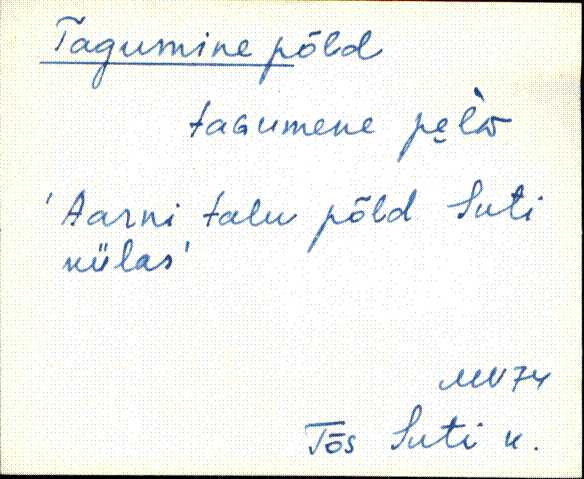 Tagumine põld
tagumene
'Aarni talu põld Suti
külas'
MV74
Tõs Suti k.